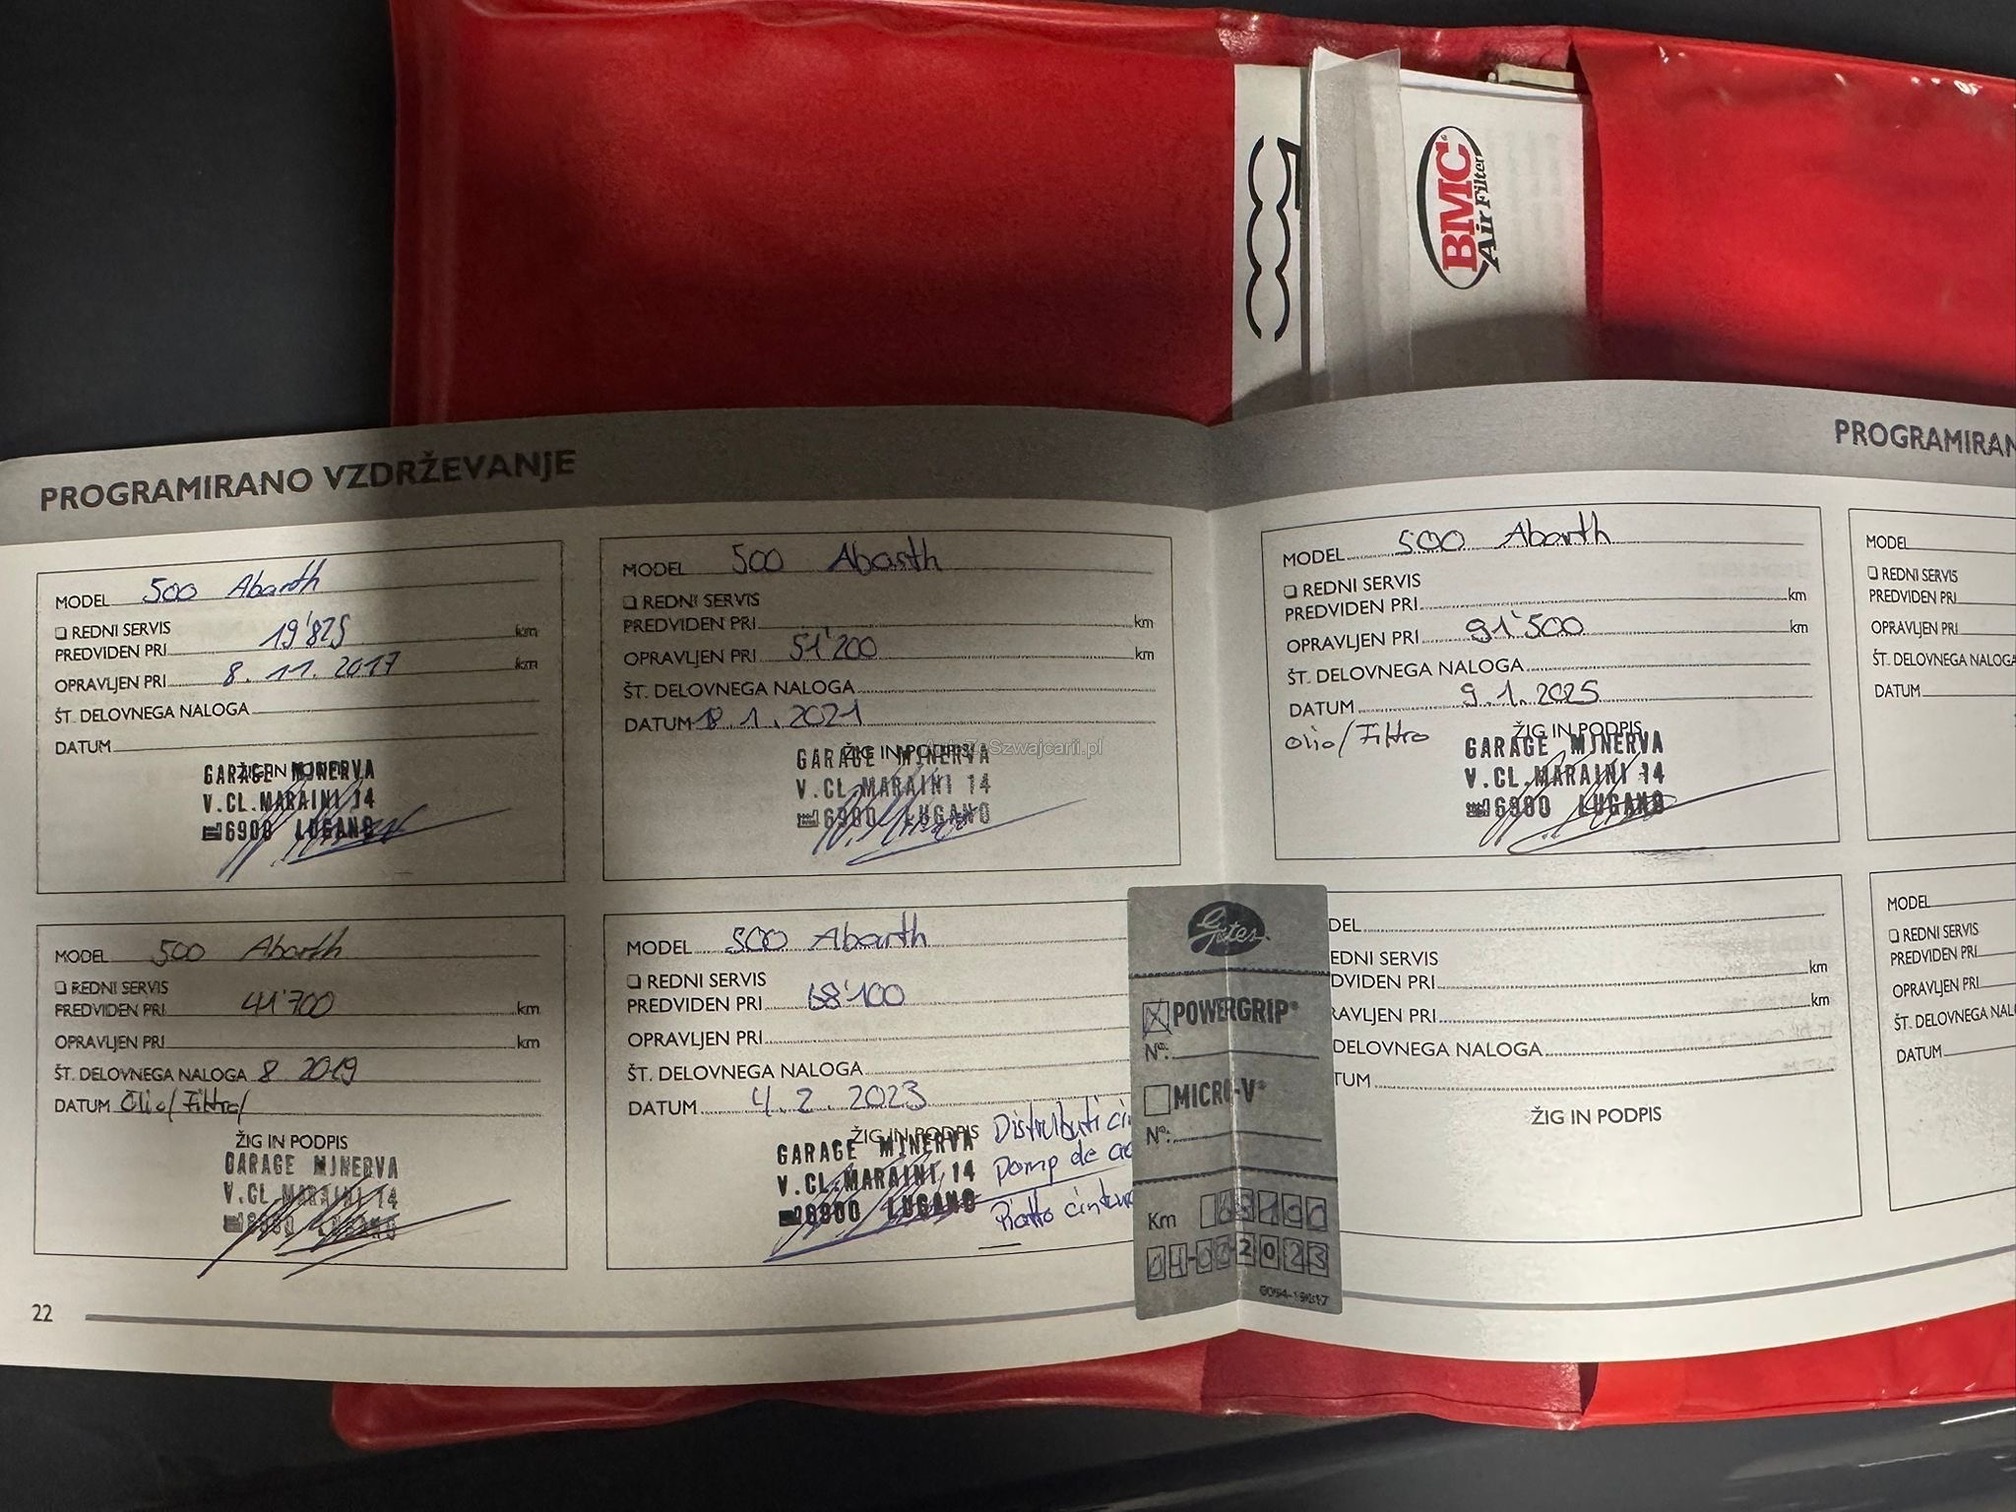 500
BMC
Air Filter
PROGRAMIRANO VZDRŽEVANJE
MODEL 500 Abarth
REDNI SERVIS
PREDVIDEN PRI 19'825 km
OPRAVLJEN PRI 8.11.2017 km
ŠT. DELOVNEGA NALOGA
DATUM
GARAGE MINERVA
V.CL.MARAINI 14
6900 LUGANO
MODEL 500 Abarth
REDNI SERVIS
PREDVIDEN PRI 41'700 km
OPRAVLJEN PRI km
ŠT. DELOVNEGA NALOGA 8 2019
DATUM Olio/Filtro/
ŽIG IN PODPIS
GARAGE MINERVA
V.CL.MARAINI 14
6900 LUGANO
22
MODEL 500 Abarth
REDNI SERVIS
PREDVIDEN PRI km
OPRAVLJEN PRI 51'200 km
ŠT. DELOVNEGA NALOGA
DATUM 18.1.2021
ŽIG IN PODPIS
GARAGE MINERVA
V.CL.MARAINI 14
6900 LUGANO
MODEL 500 Abarth
REDNI SERVIS
PREDVIDEN PRI 68'100
OPRAVLJEN PRI
ŠT. DELOVNEGA NALOGA
DATUM 4.2.2023
ŽIG IN PODPIS
GARAGE MINERVA
V.CL.MARAINI 14
6900 LUGANO
Gates
POWERGRIP®
N°:
MICRO-V®
N°:
Km 68100
04-02-2023
PROGRAMIRAN
MODEL 500 Abarth
REDNI SERVIS
PREDVIDEN PRI km
OPRAVLJEN PRI 91'500 km
ŠT. DELOVNEGA NALOGA
DATUM 9.1.2025
Olio/Filtro
ŽIG IN PODPIS
GARAGE MINERVA
V.CL.MARAINI 14
6900 LUGANO
DEL
EDNI SERVIS
DVIDEN PRI km
RAVLJEN PRI km
DELOVNEGA NALOGA
TUM
ŽIG IN PODPIS
MODEL
REDNI SERVIS
PREDVIDEN PRI
OPRAVLJEN PRI
ŠT. DELOVNEGA NALOGA
DATUM
MODEL
REDNI SERVIS
PREDVIDEN PRI
OPRAVLJEN PRI
ŠT. DELOVNEGA NAL
DATUM